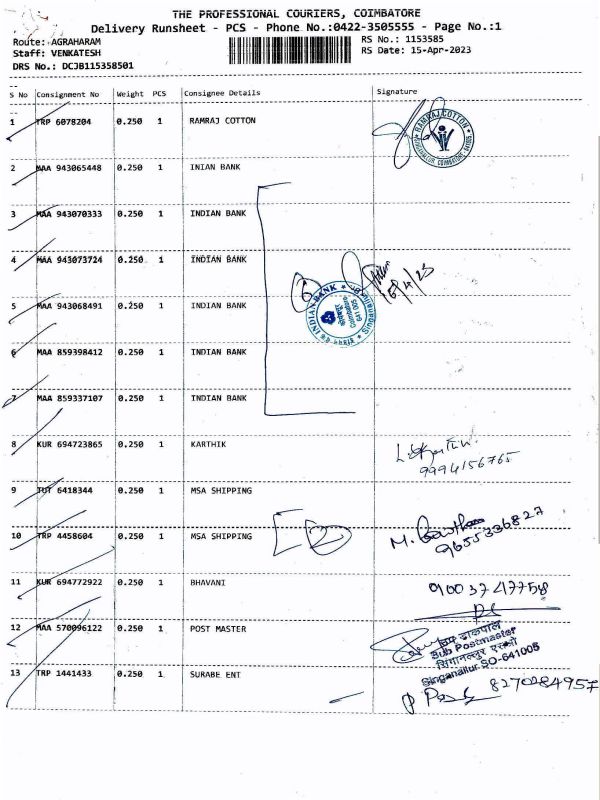 THE PROFESSIONAL COURIERS, COIMBATORE
Delivery Runsheet - PCS - Phone No.:0422-3505555 - Page No.:1
Route: AGRAHARAM
RS No.: 1153585
Staff: VENKATESH
RS Date: 15-Apr-2023
DRS No.: DCJB115358501
S No Consignment No Weight PCS Consignee Details Signature
1 TRP 6078204 0.250 1 RAMRAJ COTTON
RAMRAJ COTTON
SINGANALLUR, COIMBATORE
2 MAA 943065448 0.250 1 INIAN BANK
3 MAA 943070333 0.250 1 INDIAN BANK
4 MAA 943073724 0.250 1 INDIAN BANK
15/4/23
6
INDIAN BANK
Coimbatore
641 005
5 MAA 943068491 0.250 1 INDIAN BANK
6 MAA 859398412 0.250 1 INDIAN BANK
7 MAA 859337107 0.250 1 INDIAN BANK
8 KUR 694723865 0.250 1 KARTHIK
9994156765
9 TUT 6418344 0.250 1 MSA SHIPPING
10 TRP 4458604 0.250 1 MSA SHIPPING
2
M. Gowtham
9655336827
11 KUR 694772922 0.250 1 BHAVANI
9003747758
12 MAA 570096122 0.250 1 POST MASTER
उप डाकपाल
Sub Postmaster
सिंगानल्लूर एस.ओ
Singanallur SO-641005
13 TRP 1441433 0.250 1 SURABE ENT
8270284957